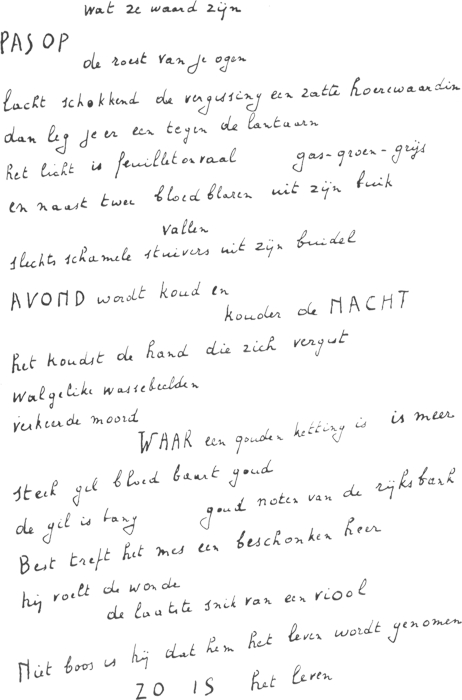 wat ze waard zijn
PAS OP
de roest van je ogen
lacht schokkend de vergissing een zatte hoerewaardin
dan leg je er een tegen de lantaarn
het licht is feuilletonvaal gas-groen-grijs
en naast twee bloedblaren uit zijn buik
vallen
slechts schamele stuivers uit zijn buidel
AVOND wordt koud en
kouder de NACHT
het koudst de hand die zich vergist
walgelike wassebeelden
verkeerde moord
WAAR een gouden ketting is is meer
steek gil bloed baart goud
de gil is bang goud noten van de rijksbank
Best treft het mes een beschonken heer
hij voelt de wonde
de laatste snik van een viool
Niet boos is hij dat hem het leven wordt genomen
ZO IS het leven